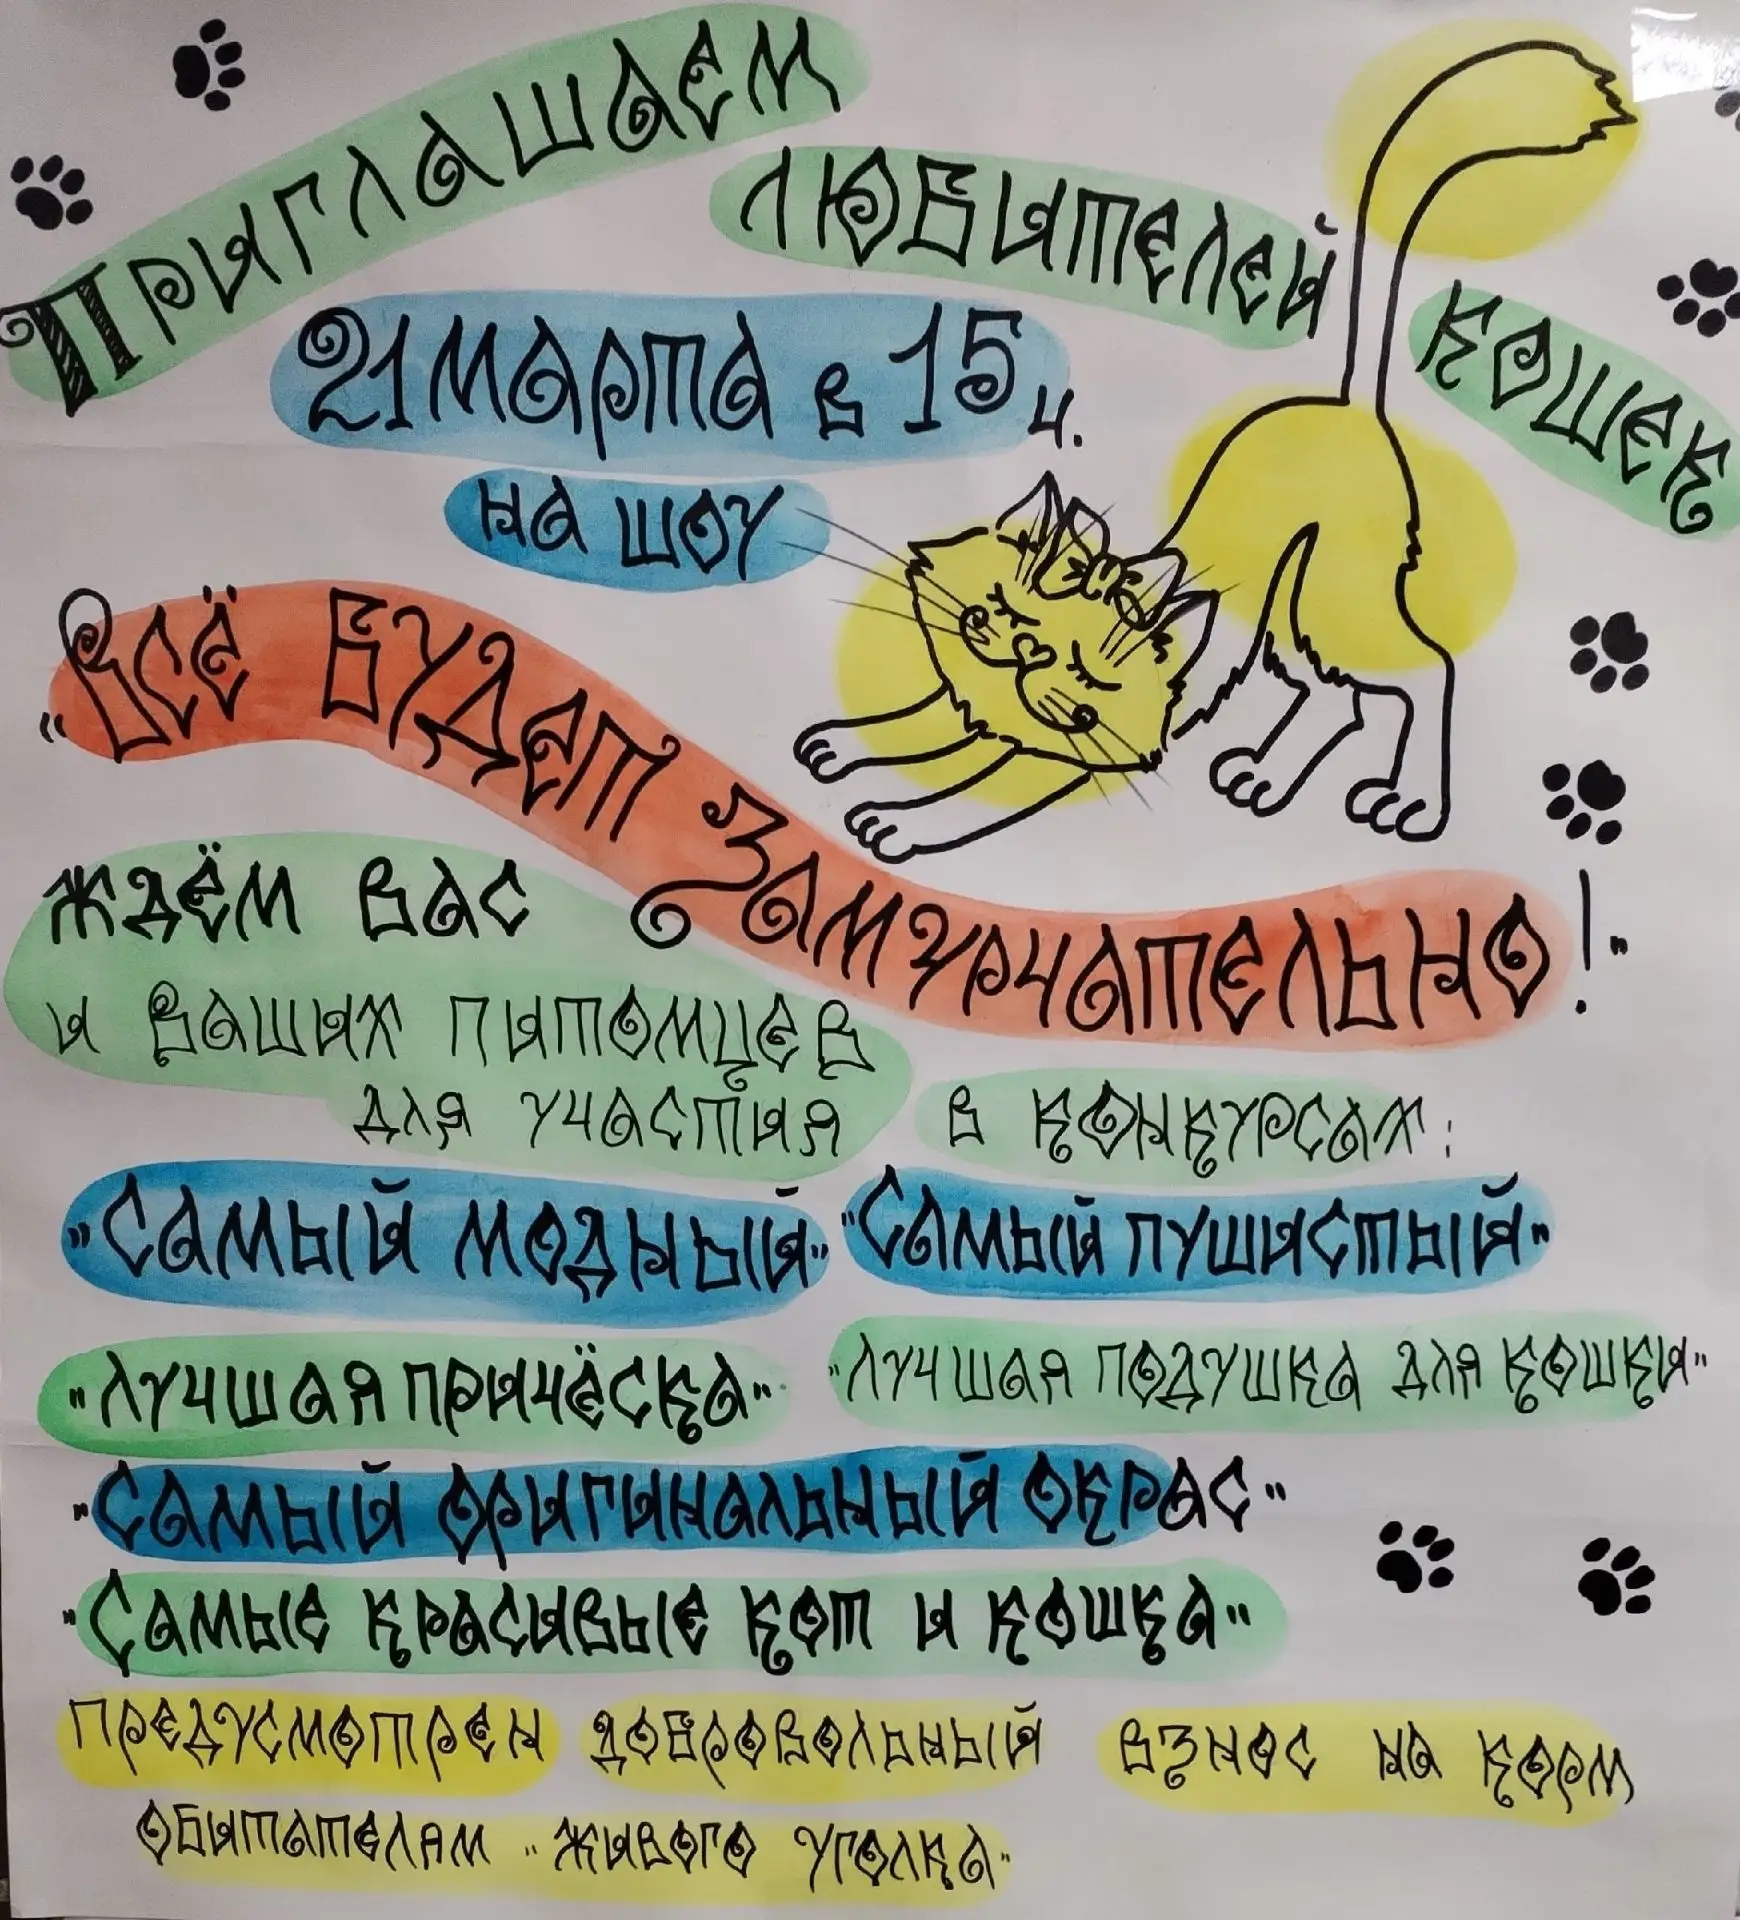 Приглашаем
любителей
кошек
21 марта в 15 ч.
на шоу
"Всё будет замурчательно!"
Ждём вас
и ваших питомцев
для участия в конкурсах:
"Самый модный" "Самый пушистый"
"Лучшая причёска" "Лучшая подушка для кошки"
"Самый оригинальный окрас"
"Самые красивые кот и кошка"
Предусмотрен добровольный взнос на корм
обитателям "живого уголка"